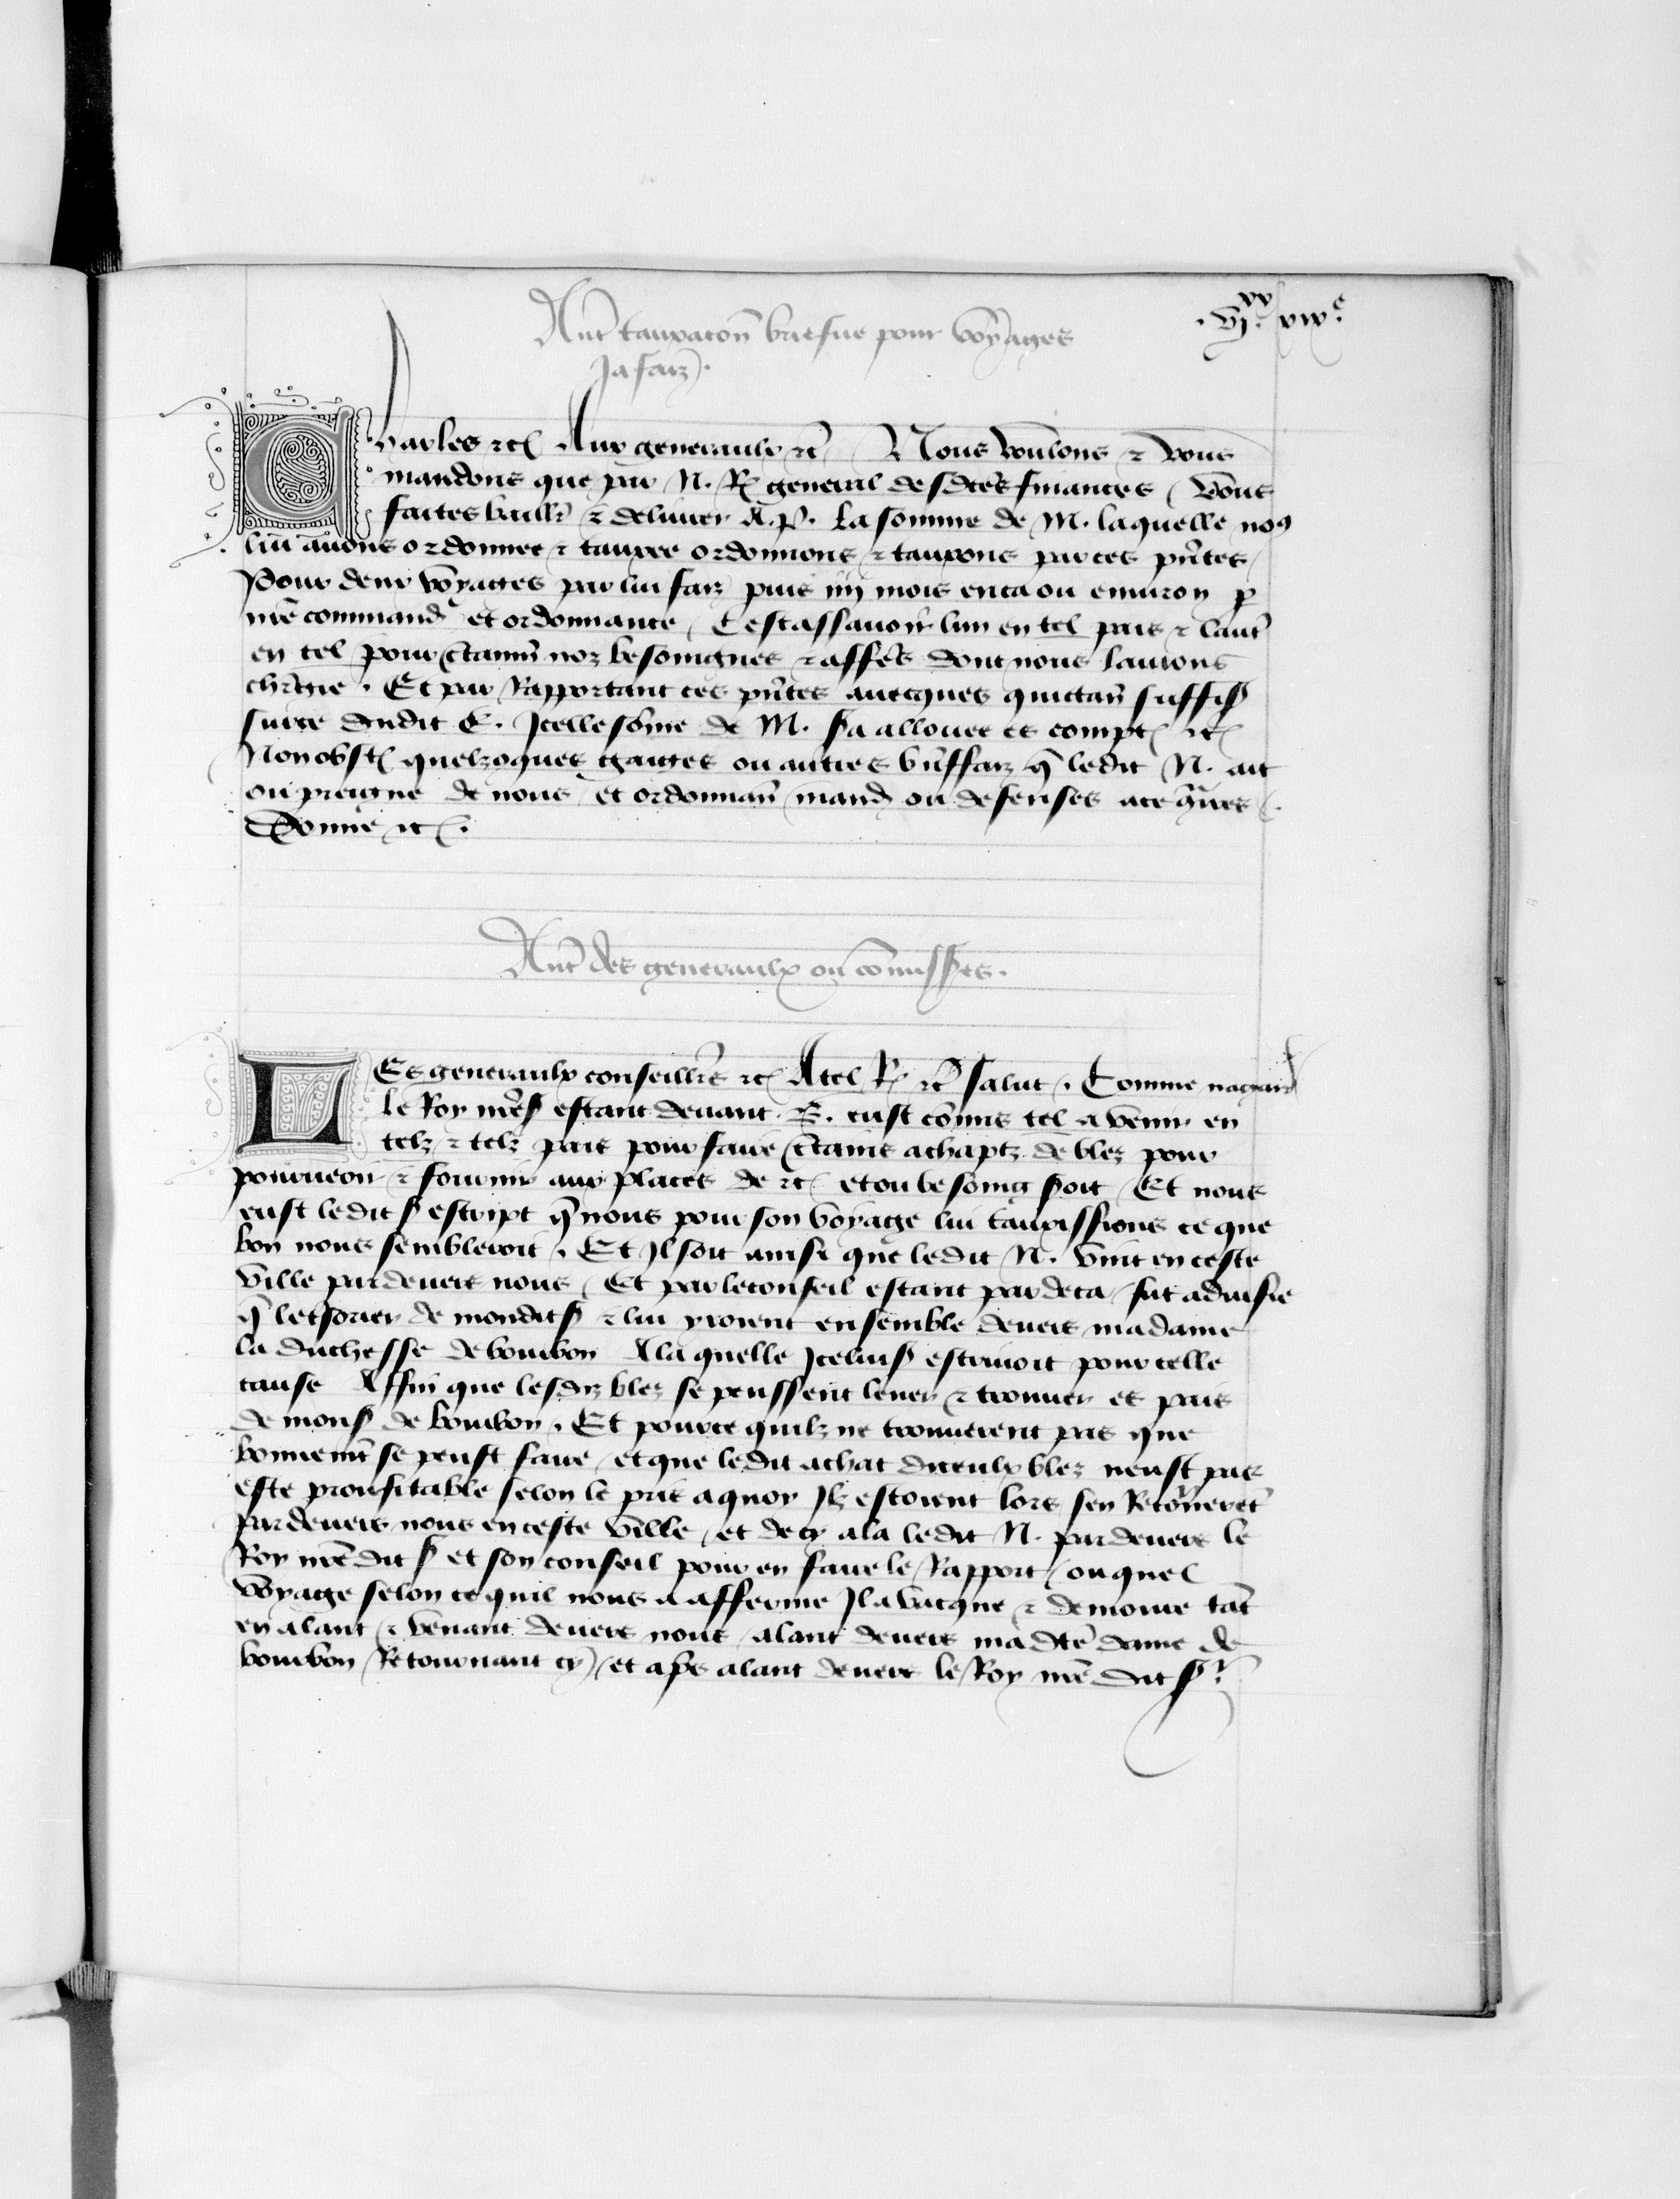 .vjxx. xix.e
Autr̄ tauxacon̄ briefue pour voyages
Ja faiz.
Charles etc Aux generaulx etc Nous voulons et vous
mandons que par N. R general desdc̄es finances vous
faites baill̄r et deliurer A. P. la somme de M. laquelle nous
lui auons ordonnee et tauxee ordonnons et tauxons par ces pn̄tes
Pour deux voyages par lui faiz puis iiij mois enca ou enuiron p
nr̄e command et ordonnance Cestassauoir lun en tel pais et lautr̄
en tel pour c̄tains noz besoingnes et affer̄s dont nous lauions
chr̄gie. Et par Rapportant ces pn̄tes auecques quictan̄ suffis
sante dudit E. Icelle som̄e de M. sa allouee es compt etc
Nonobst quelzoques gaiges ou autres bn̄ffaiz q̄ ledit N. ait
ou preigne de nous et ordonnan̄ mand ou defenses a ce q̄ires
Donne etc.
Autr̄ des generaulx ou com̄isses.
LEs generaulx conseill̄rs etc A tel R etc salut. Comme nagaires
le Roy nr̄es estant deuant B. eust com̄is tel a venir en
telz et telz pais pour faire c̄tains achaptz de blez pour
pourueoir et fournir aux places de etc et ou besoing soit Et nous
eust ledit s escript q̄ nous pour son voyage lui tauxissions ce que
bon nous sembleroit. Et Il soit ainsi que ledit N. vint en ceste
ville pardeuers nous Et par le conseil estant par deca fut aduisie
q̄ le tsorier de mondits et lui yroient ensemble deuers madame
la duchesse de bourbon A laquelle Icelui s escriuoit pour celle
cause Affin que lesdiz blez se peussent leuer et trouuer es pais
de mons de bourbon. Et pource quilz ne trouuerent pas que
bonnemt̄ se peust faire et que ledit achat diceulx blez neust pas
este proufitable selon le pris a quoy Ilz estoient lors sen Retourneret̄
pardeuers nous en ceste ville et de cy ala ledit N. pardeuers le
Roy nr̄e dit s et son conseil pour en faire le Rapport ou quel
voyage selon ce quil nous a afferme Il a vacque et demoure tāt
en alant et venant deuers nous alant deuers madc̄e dame de
bourbon Retournant cy et aps alant deuers le Roy nr̄e dit sr